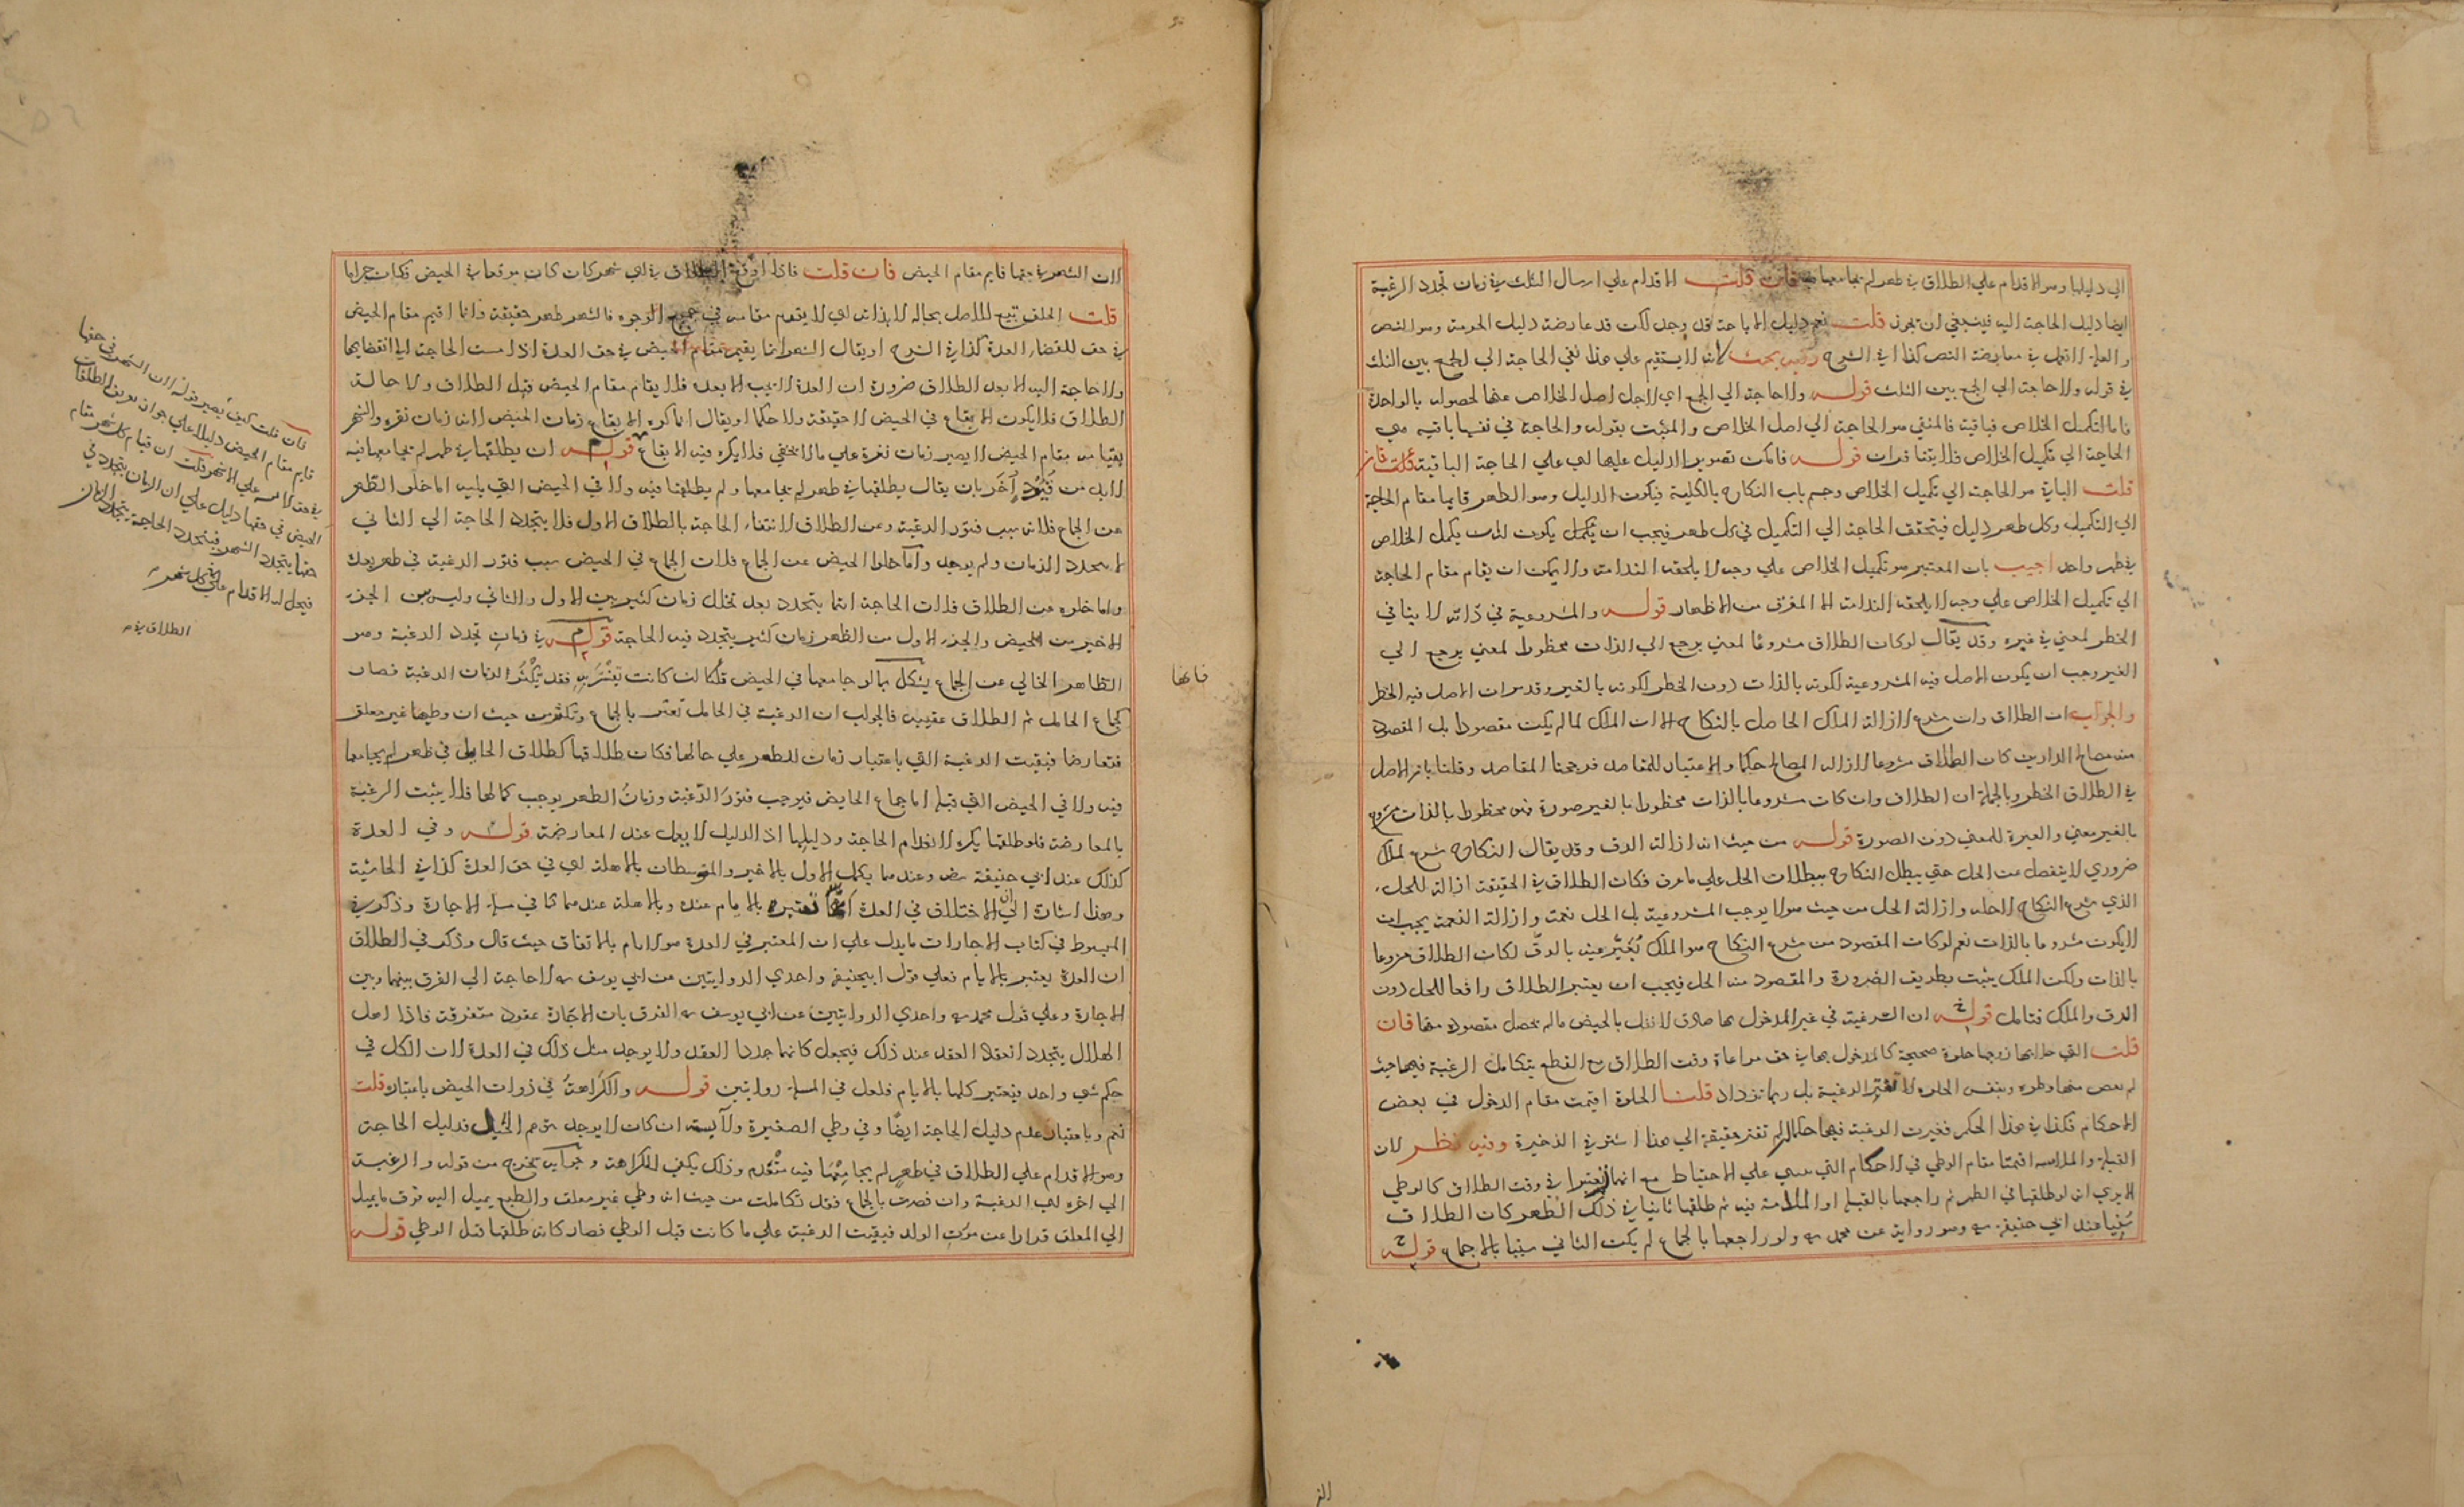 الي دليلها وهو الاقدام علي الطلاق في طهر لم يجامعها فيه فان قلت الاقدام علي ارسال الثلث في زمان تجدد الرغبة
ايضا دليل الحاجة اليه فينبغي ان يجوز قلت نعم دليل الاباحة قد وجد لكن قد عارضه دليل الحرمة وهو النص
والعلة لا تعمل في معارضة النص كذا في الشرح وفيه بحث لانه لا يستقيم علي هذا نفي الحاجة الي الجمع بين الثلث
في قوله ولا حاجة الي الجمع بين الثلث قوله ولا حاجة الي الجمع اي لاجل اصل الخلاص عنها لحصوله بالواحدة
فاما لتكميل الخلاص فباقية فالمنفي هو الحاجة الي اصل الخلاص والمثبت بقوله والحاجة في نفسها باقية هي
الحاجة الي تكميل الخلاص فلا يتنافيان قوله فامكن تصوير الدليل عليها اي علي الحاجة الباقية فان
قلت الباقي هو الحاجة الي تكميل الخلاص وحسم باب النكاح بالكلية فيكون الدليل وهو الطهر قايما مقام الحاجة
الي التكميل وكل طهر دليل فيتحقق الحاجة الي التكميل في كل طهر فيجب ان يكمل يكون لانه يكمل الخلاص
في طهر واحد اجيب بان المعتبر هو تكميل الخلاص علي وجه لا يلحقه الندامة ولا يمكن ان يقام مقام الحاجة
الي تكميل الخلاص علي وجه لا يلحقه الندامة الا المفرق من الاطهار قوله والمشروعية في ذاته لا ينافي
الحظر لمعني في غيره وقد يقال لو كان الطلاق مشروعا لمعني يرجع الي الذات محظورا لمعني يرجع الي
الغير وجب ان يكون الاصل فيه المشروعية لكونه بالذات دون الحظر لكونه بالغير وقد مر ان الاصل فيه الحظر
والجواب ان الطلاق وان شرع لازالة الملك الحاصل بالنكاح الا ان الملك لما لم يكن مقصودا بل المقصود
منه مصالح الدارين كان الطلاق مشروعا لازالة المصالح حكما والاعتبار للمقاصد فرجحنا المقاصد وقلنا بان الاصل
في الطلاق الحظر وبالجملة ان الطلاق وان كان مشروعا بالذات محظورا بالغير صورة فهو محظور بالذات مشروع
بالغير معني والعبرة للمعني دون الصورة قوله من حيث انه ازالة الرق وقد يقال النكاح شرع لملك
ضروري لا ينفصل عن الحل حتي يبطل النكاح ببطلان الحل علي ما عرف فكان الطلاق في الحقيقة ازالة للحل
الذي شرع النكاح لاجله وازالة الحل من حيث هو لا يوجب المشروعية بل الحل نعمة وازالة النعمة يجب ان
لا يكون مشروعا بالذات نعم لو كان المقصود من شرع النكاح هو الملك يعبر عنه بالرق لكان الطلاق مشروعا
بالذات ولكن الملك يثبت بطريق الضرورة والمقصود منه الحل فيجب ان يعتبر الطلاق رافعا للحل دون
الرق والملك فتامل قوله ان الرغبة في غير المدخول بها صادق لا تقل بالحيض ما لم يحصل مقصوده منها فان
قلت التي خلا بها زوجها خلوة صحيحة كالمدخول بها في حق مراعاة وقت الطلاق مع القطع بتكامل الرغبة فيها حيث
لم يقض منها وطره وبنفس الخلوة لا تفتر الرغبة بل ربما تزداد قلنا الخلوة اقيمت مقام الدخول في بعض
الاحكام فكذا في هذا الحكم فغيرت الرغبة فيها حكما وان لم تفتر حقيقة الي هذا اشير في الذخيرة وفيه نظر لان
القبلة والملامسة اقيمتا مقام الوطي في الاحكام التي مبني علي الاحتياط مع انهما لم يعتبرا في وقت الطلاق كالوطي
الا يري انه لو طلقها في الطهر ثم راجعها بالقبلة او الملامسة فيه ثم طلقها ثانيا في ذلك الطهر كان الطلاق
سنيا عند ابي حنيفة وهو رواية عن محمد ولو راجعها بالجماع لم يكن الثاني سنيا بالاجماع قوله
لان الشهر في حقها قايم مقام الحيض فان قلت فاذا اوقع الطلاق في اي شهر كان كان موقعا في الحيض فكان حراما
قلت الخلف تبع للاصل بحاله لا بذاته اي لا يقوم مقامه في جميع الوجوه فالشهر طهر حقيقة وانما اقيم مقام الحيض
في حق انقضاء العدة كذا في الشرح او يقال الشهر انما يقيم مقام الحيض في حق العدة اذا مست الحاجة الي انقضايها
ولا حاجة اليه الا بعد الطلاق ضرورة ان العدة لا تجب الا بعده فلا يقام مقام الحيض قبل الطلاق ولا حالة
الطلاق فلا يكون الايقاع في الحيض لا حقيقة ولا حكما او يقال انما كره الايقاع زمان الحيض لانه زمان نفرة والشهر
بقيامه مقام الحيض لا يصير زمان نفرة علي ما لا يخفي فلا يكره فيه الايقاع قوله ان يطلقها في طهر لم يجامعها فيه
لا بد من قيود آخر بان يقال يطلقها في طهر لم يجامعها ولم يطلقها فيه ولا في الحيض التي يليه اما خلو الطهر
عن الجماع فلانه سبب فتور الرغبة وعن الطلاق لانتفاء الحاجة بالطلاق الاول فلا يتجدد الحاجة الي الثاني
الا بتجدد الزمان ولم يوجد واما خلو الحيض عن الجماع فلان الجماع في الحيض سبب فتور الرغبة في طهر بعده
واما خلوه عن الطلاق فلان الحاجة انما يتجدد بعد تخلل زمان كثير بين الاول والثاني وليس بين الجزء
الاخير من الحيض والجزء الاول من الطهر زمان كثير يتجدد فيه الحاجة قوله في زمان تجدد الرغبة وهو
الطاهر الخالي عن الجماع يشكل بما لو جامعها في الحيض قلنا كانت بعشرته فقد يكثر الزمان الرغبة فصار
كجماع الحامل ثم الطلاق عقيبه فالجواب ان الرغبة في الحامل تعتبر بالجماع وتكثر من حيث ان وطيها غير معلق
فتعارضا فبقيت الرغبة التي باعتبار زمان الطهر علي حالها فكان طلاقها كطلاق الحايل في طهر لم يجامعها
فيه ولا في الحيض التي قبله اما جماع الحايض فيوجب فتور الرغبة وزمان الطهر يوجب كمالها فلا يثبت الرغبة
بالمعارضة فلو طلقها يكره لانعدام الحاجة ودليلها اذ الدليل لا يعمل عند المعارضة قوله وفي العدة
كذلك عند ابي حنيفة وعندهما يكمل الاول بالاخير والمتوسطان بالاهلة اي في حق العدة كذا في الحاشية
وهذا اشارة الي ان الاختلاف في العدة انها تعتبر بالايام عنده وبالاهلة عندهما كما في مسئلة الاجارة وذكر في
المبسوط في كتاب الاجارات ما يدل علي ان المعتبر في العدة هو الايام بالاتفاق حيث قال وذكر في الطلاق
ان العدة يعتبر بالايام فعلي قول ابي حنيفة واحدي الروايتين عن ابي يوسف لا حاجة الي الفرق بينها وبين
الاجارة وعلي قول محمد واحدي الروايتين عن ابي يوسف الفرق بان الاجارة عقود متفرقة فاذا اهل
الهلال يتجدد انعقاد العقد عند ذلك فيجعل كانهما جددا العقد ولا يوجد مثل ذلك في العدة لان الكل في
حكم شي واحد فيعتبر كلها بالايام فلعل في المسئلة روايتين قوله والكراهة في ذوات الحيض باعتباره قلت
نعم وباعتبار عدم دليل الحاجة ايضا وفي وطي الصغيرة والآيسة ان كان لا يوجد توهم الحبل فدليل الحاجة
وهو الاقدام علي الطلاق في طهر لم يجامعها فيه منعدم وذلك يكفي للكراهة وجوابه يخرج من قوله والرغبة
الي اخره اي الرغبة وان قصرت بالجماع فقد تكاملت من حيث انه وطي غير معلق والطبع يميل اليه فوق ما يميل
الي المعلق فرارا عن مؤن الولد فبقيت الرغبة علي ما كانت قبل الوطي فصار كانه طلقها قبل الوطي قوله
فان قلت كيف يصير قوله لان الشهر في حقها
قايم مقام الحيض دليلا علي جواز تفريق الطلقات
في حق الآيسة علي الاشهر قلت ان قيام كل شهر مقام
الحيض في حقها دليل علي ان الزمان يتجدد في
حقها بتجدد الشهر فيتجدد الحاجة بتجدد الزمان
فيحل له الاقدام علي كل شهر
الطلاق في
فانها